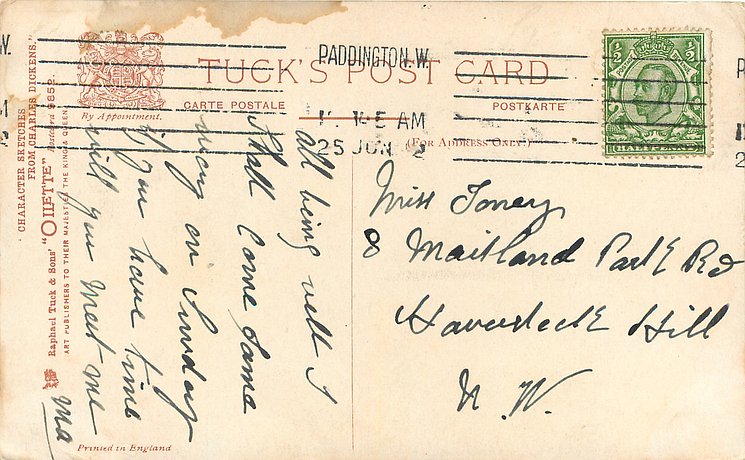 PADDINGTON. W.
TUCK'S POST CARD
CARTE POSTALE
POSTKARTE
By Appointment.
5 AM
25 JUN
(FOR ADDRESS ONLY.)
½ ½
HALFPENNY
"CHARACTER SKETCHES
FROM CHARLES DICKENS."
Raphael Tuck & Sons' "OILETTE"
ART PUBLISHERS TO THEIR MAJESTIES THE KING & QUEEN.
all being well I
shall come same
way on Sunday
if you have time
will you meet me
Ma
Miss Toney
8 Maitland Park Rd
Haverstock Hill
N. W.
Printed in England